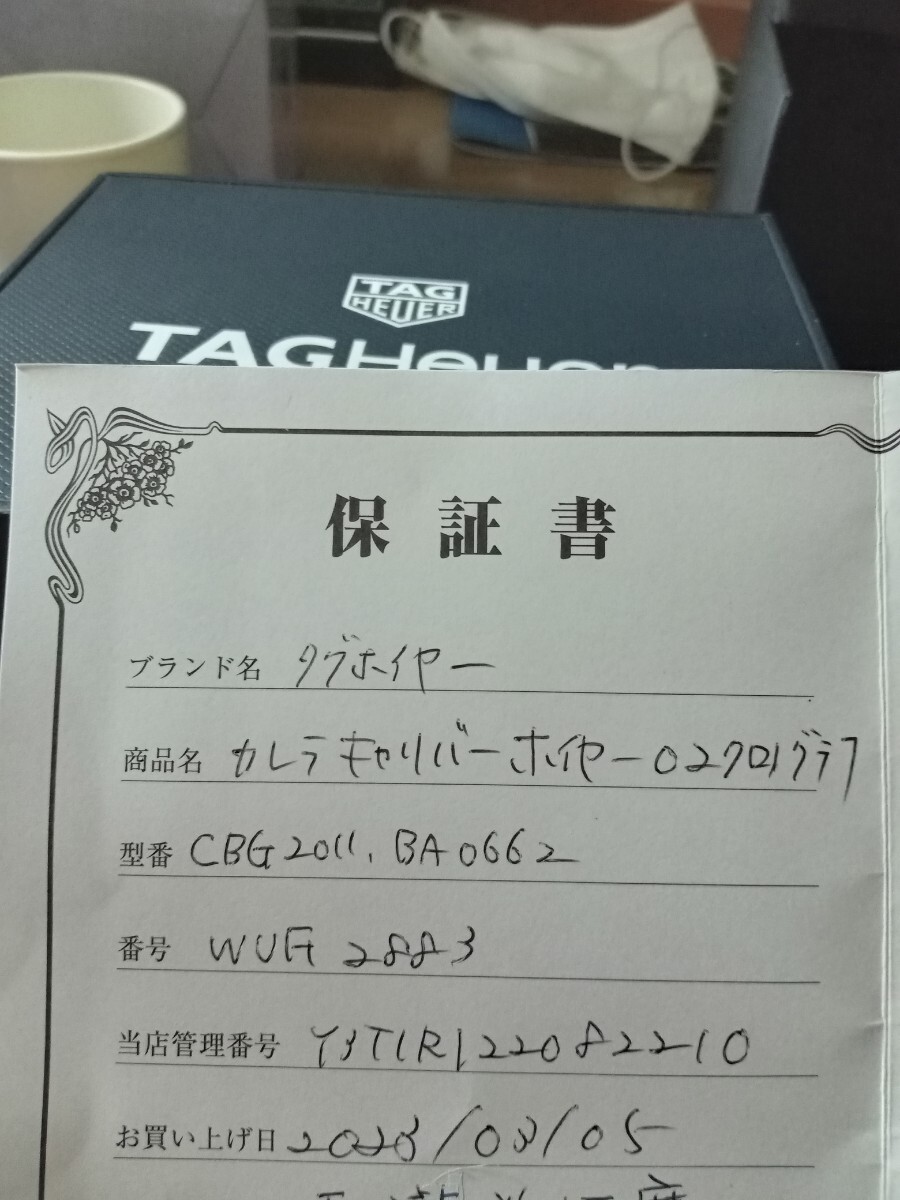 TAG
HEUER
TAGHeuer
保証書
ブランド名 タグホイヤー
商品名 カレラキャリバーホイヤー02クロノグラフ
型番 CBG2011.BA0662
番号 WUG2883
当店管理番号
お買い上げ日 2023/03/05